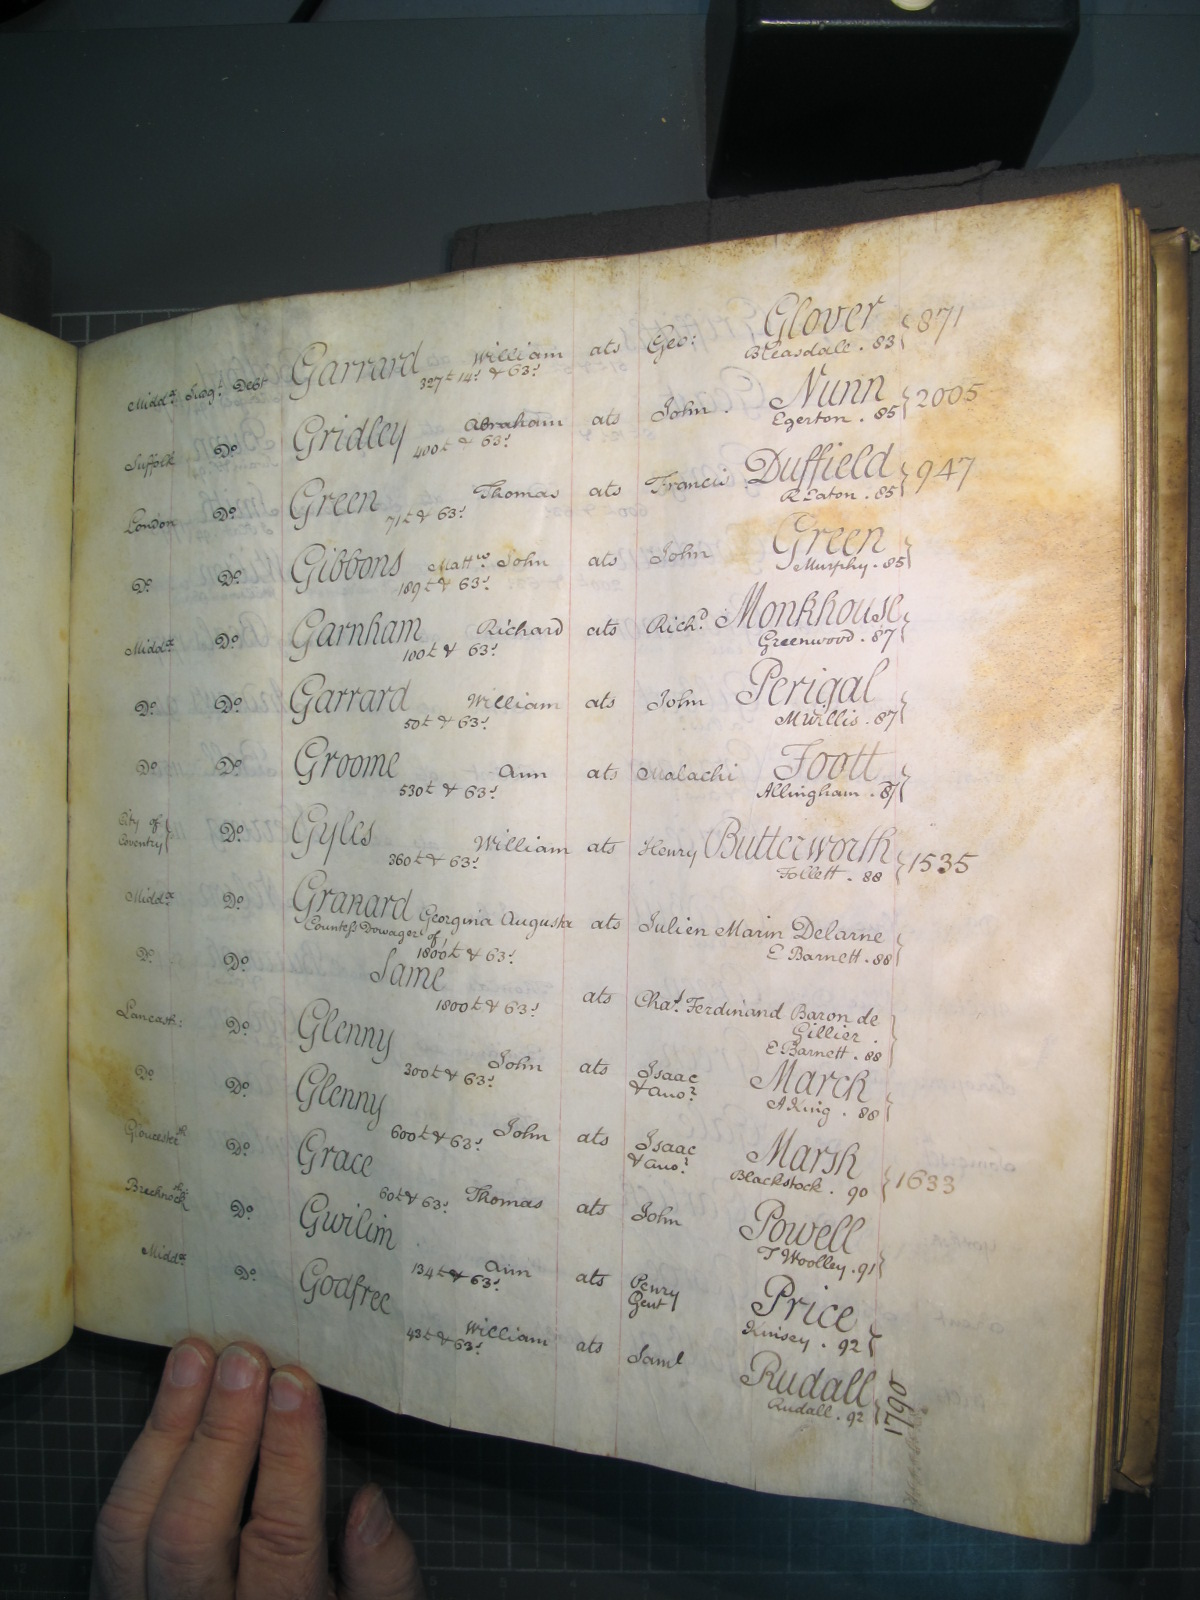 Midd.x Judg.t Debt Garrard William ats Geo: Glover 871
327£ 14s & 63s Bleasdale . 83
Suffolk Do. Gridley Abraham ats John Nunn 2005
400£ & 63s Egerton . 85
London Do. Green Thomas ats Francis Duffield 947
71£ & 63s R Eaton . 85
Do. Do. Gibbons Matt.w John ats John Green
189£ & 63s Murphy . 85
Midd.x Do. Garnham Richard ats Rich.d Monkhouse
100£ & 63s Greenwood . 87
Do. Do. Garrard William ats John Perigal
50£ & 63s M Willis . 87
Do. Do. Groome Ann ats Malachi Foott
530£ & 63s Allingham . 87
City of Coventry Do. Gyles William ats Henry Butterworth 1535
360£ & 63s Follett . 88
Midd.x Do. Granard Georgina Augusta ats Julien Marin Delarne
Countess Dowager of
1800£ & 63s E Barnett . 88
Do. Do. Same ats Chas. Ferdinand Baron de
1800£ & 63s Gillier .
E Barnett . 88
Lancash: Do. Glenny John ats Isaac March
300£ & 63s & Ano.r A King . 88
Do. Do. Glenny John ats Isaac Marsh 1633
600£ & 63s & Ano.r Blackstock . 90
Gloucester Do. Grace Thomas ats John Powell
60£ & 63s T Woolley . 91
Brecknock Do. Gwilim Ann ats Penry Price
134£ & 63s Gent Kinsey . 92
Midd.x Do. Godfree William ats Saml Rudall 1790
43£ & 63s Rudall . 92